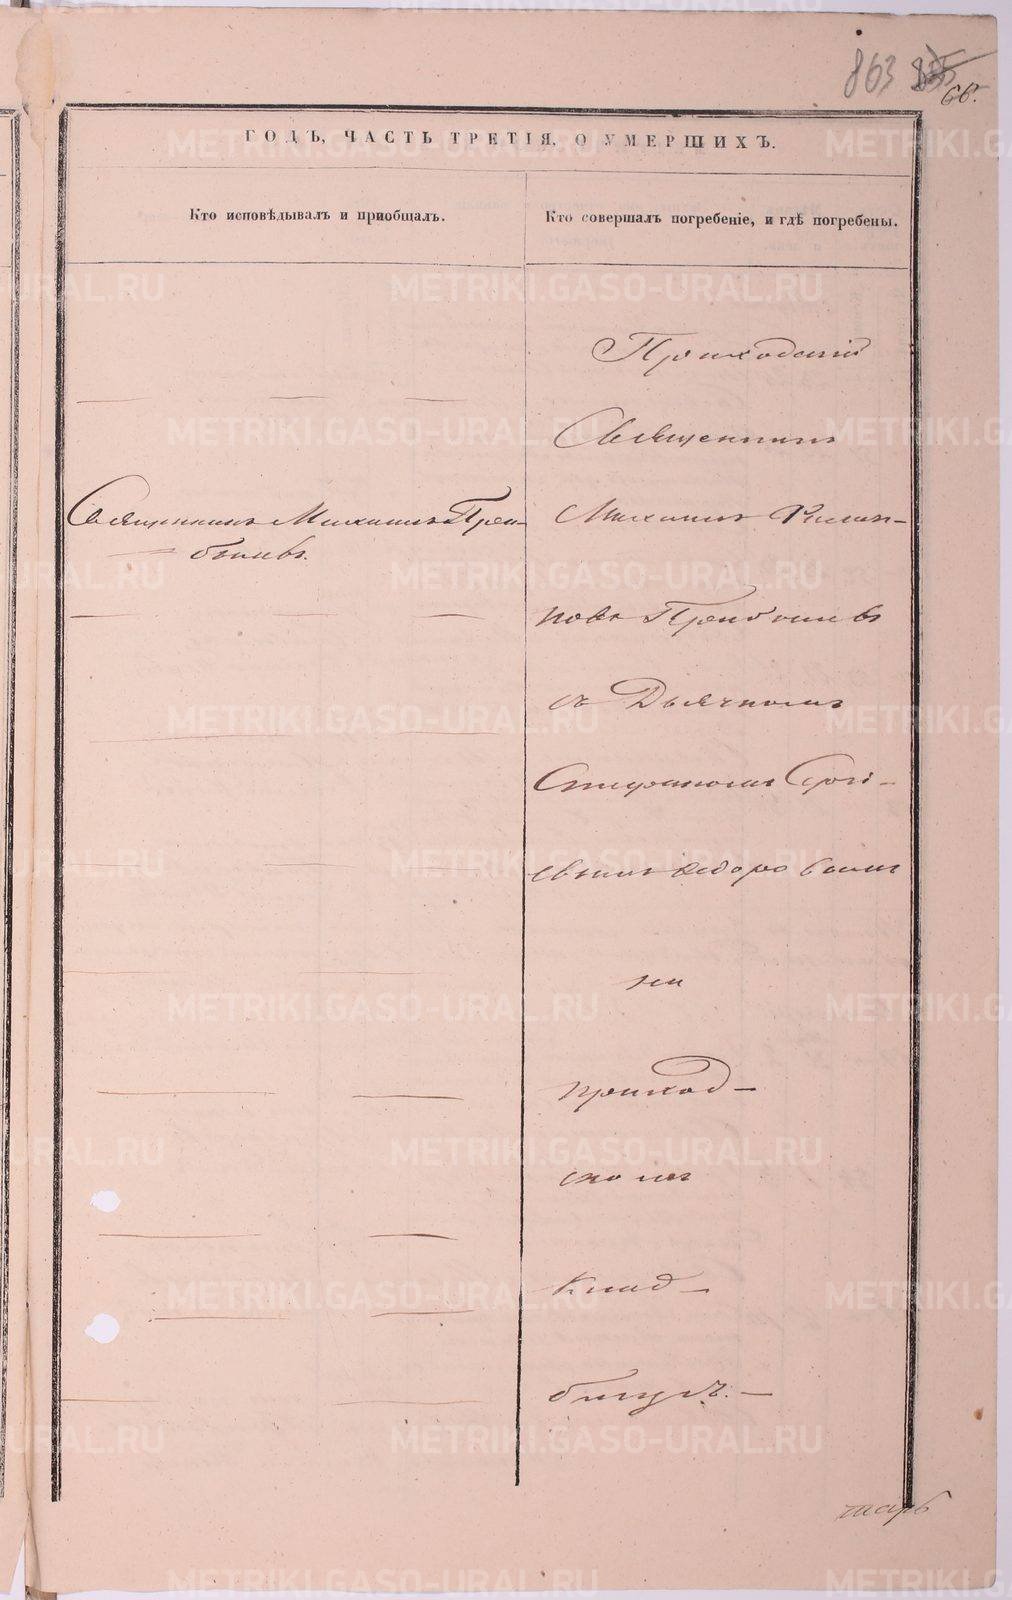 863 835
66.
ГОДЪ, ЧАСТЬ ТРЕТІЯ, О УМЕРШИХЪ.
Кто исповѣдывалъ и пріобщалъ.
Кто совершалъ погребеніе, и гдѣ погребены.
Приходскій
Священникъ
Священникъ Михаилъ
Михаилъ Филип-
повъ
съ Дьячкомъ
Стефаномъ Сергі-
евымъ Федоровымъ
на
приход-
скомъ
клад-
бищѣ. —
METRIKI.GASO-URAL.RU